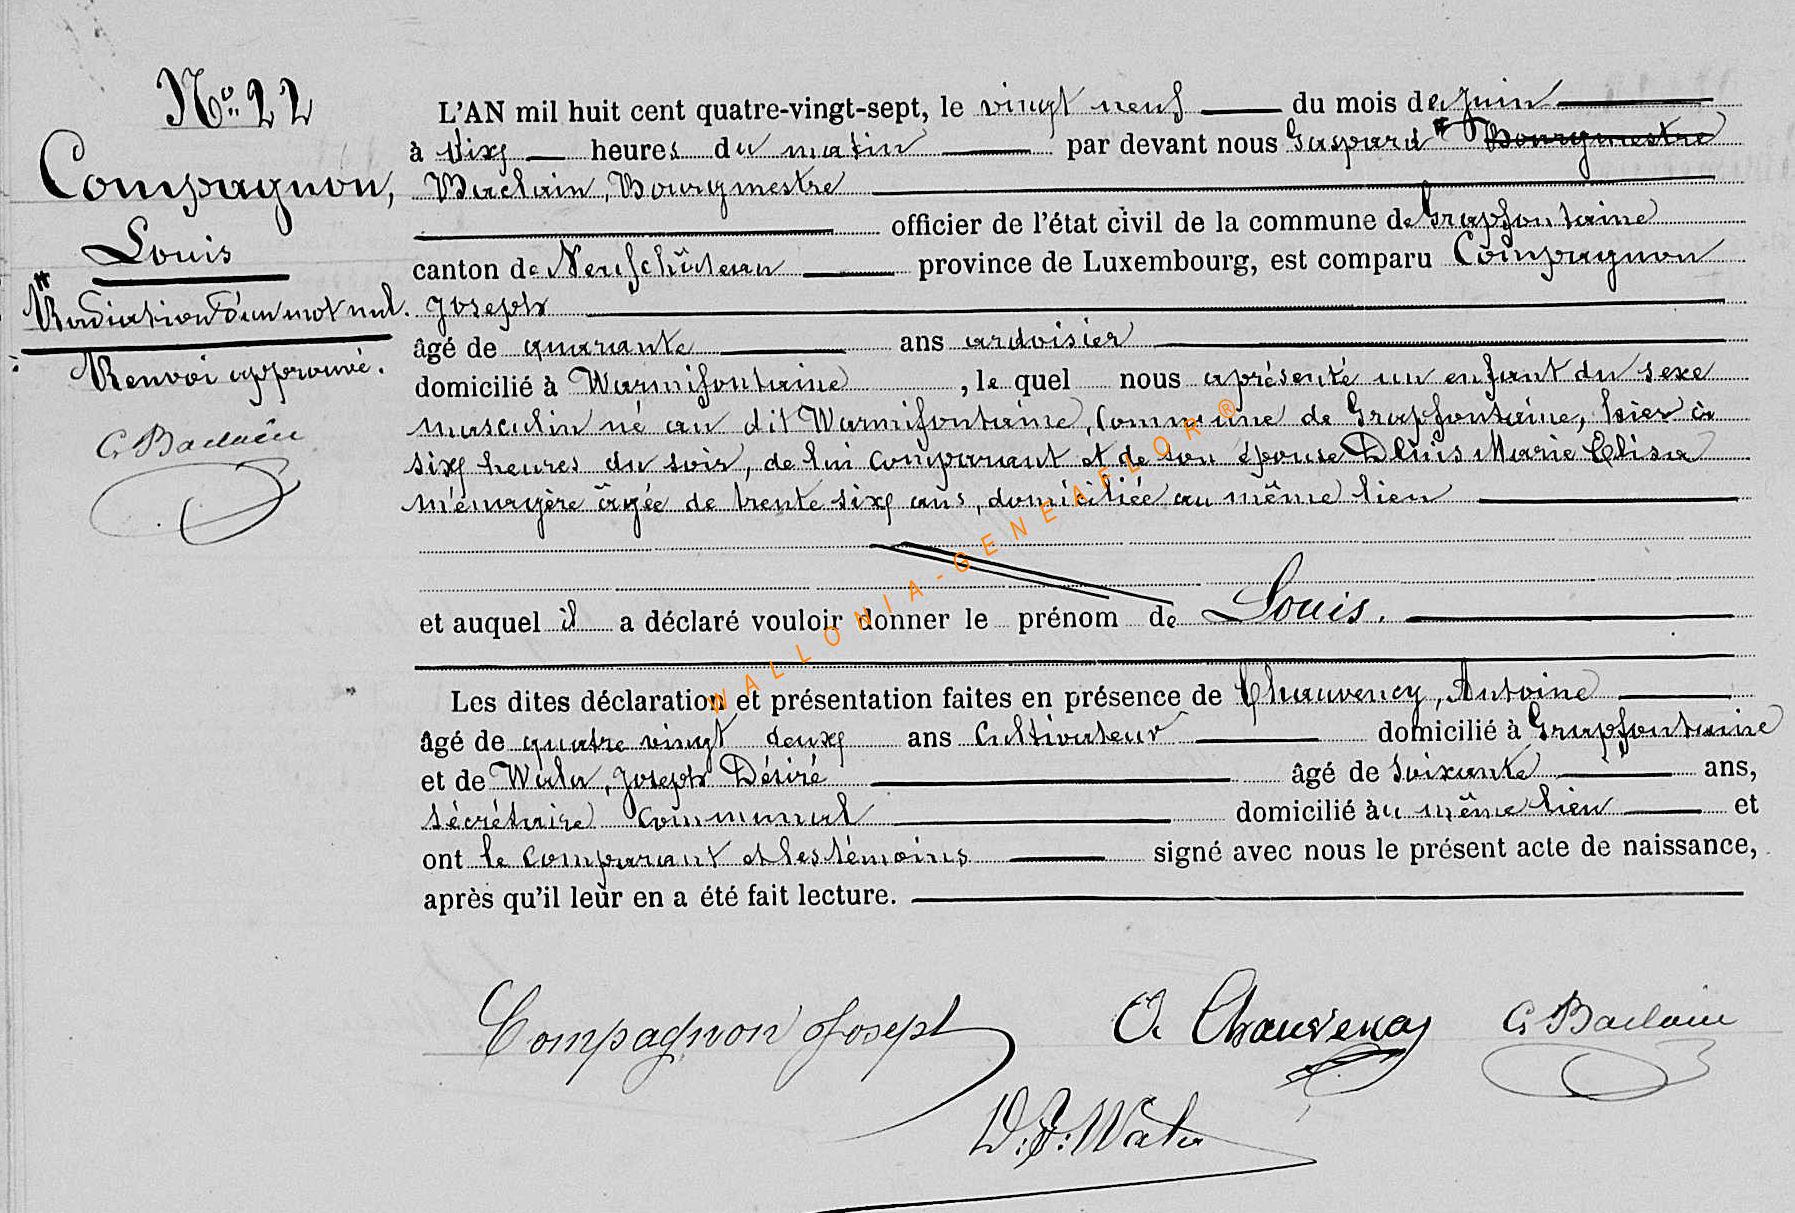 N° 22
Compagnon,
Louis
Radiation d'un mot nul.
Renvoi approuvé.
G. Baclain
L'AN mil huit cent quatre-vingt-sept, le vingt neuf du mois de Juin
à dix heures du matin par devant nous Gaspard Bourgmestre
Baclain, Bourgmestre
officier de l'état civil de la commune de Grapfontaine
canton de Neufchâteau province de Luxembourg, est comparu Compagnon
Joseph
âgé de quarante ans ardoisier
domicilié à Warmifontaine, le quel nous a présenté un enfant du sexe
masculin né au dit Warmifontaine, Commune de Grapfontaine, hier à
six heures du soir, de lui comparant et de son épouse Marie Elisa
ménagère âgée de trente six ans, domiciliée au même lieu
et auquel il a déclaré vouloir donner le prénom de Louis.
Les dites déclaration et présentation faites en présence de Chauvency, Antoine
âgé de quatre vingt deux ans Cultivateur domicilié à Grapfontaine
et de Wala, Joseph Désiré âgé de Soixante ans,
sécrétaire Communal domicilié au même lieu et
ont le comparant et les témoins signé avec nous le présent acte de naissance,
après qu'il leur en a été fait lecture.
Compagnon Joseph A. Chauvency G. Baclain
D. J. Wala
WALLONIA-GENEAFLOR®